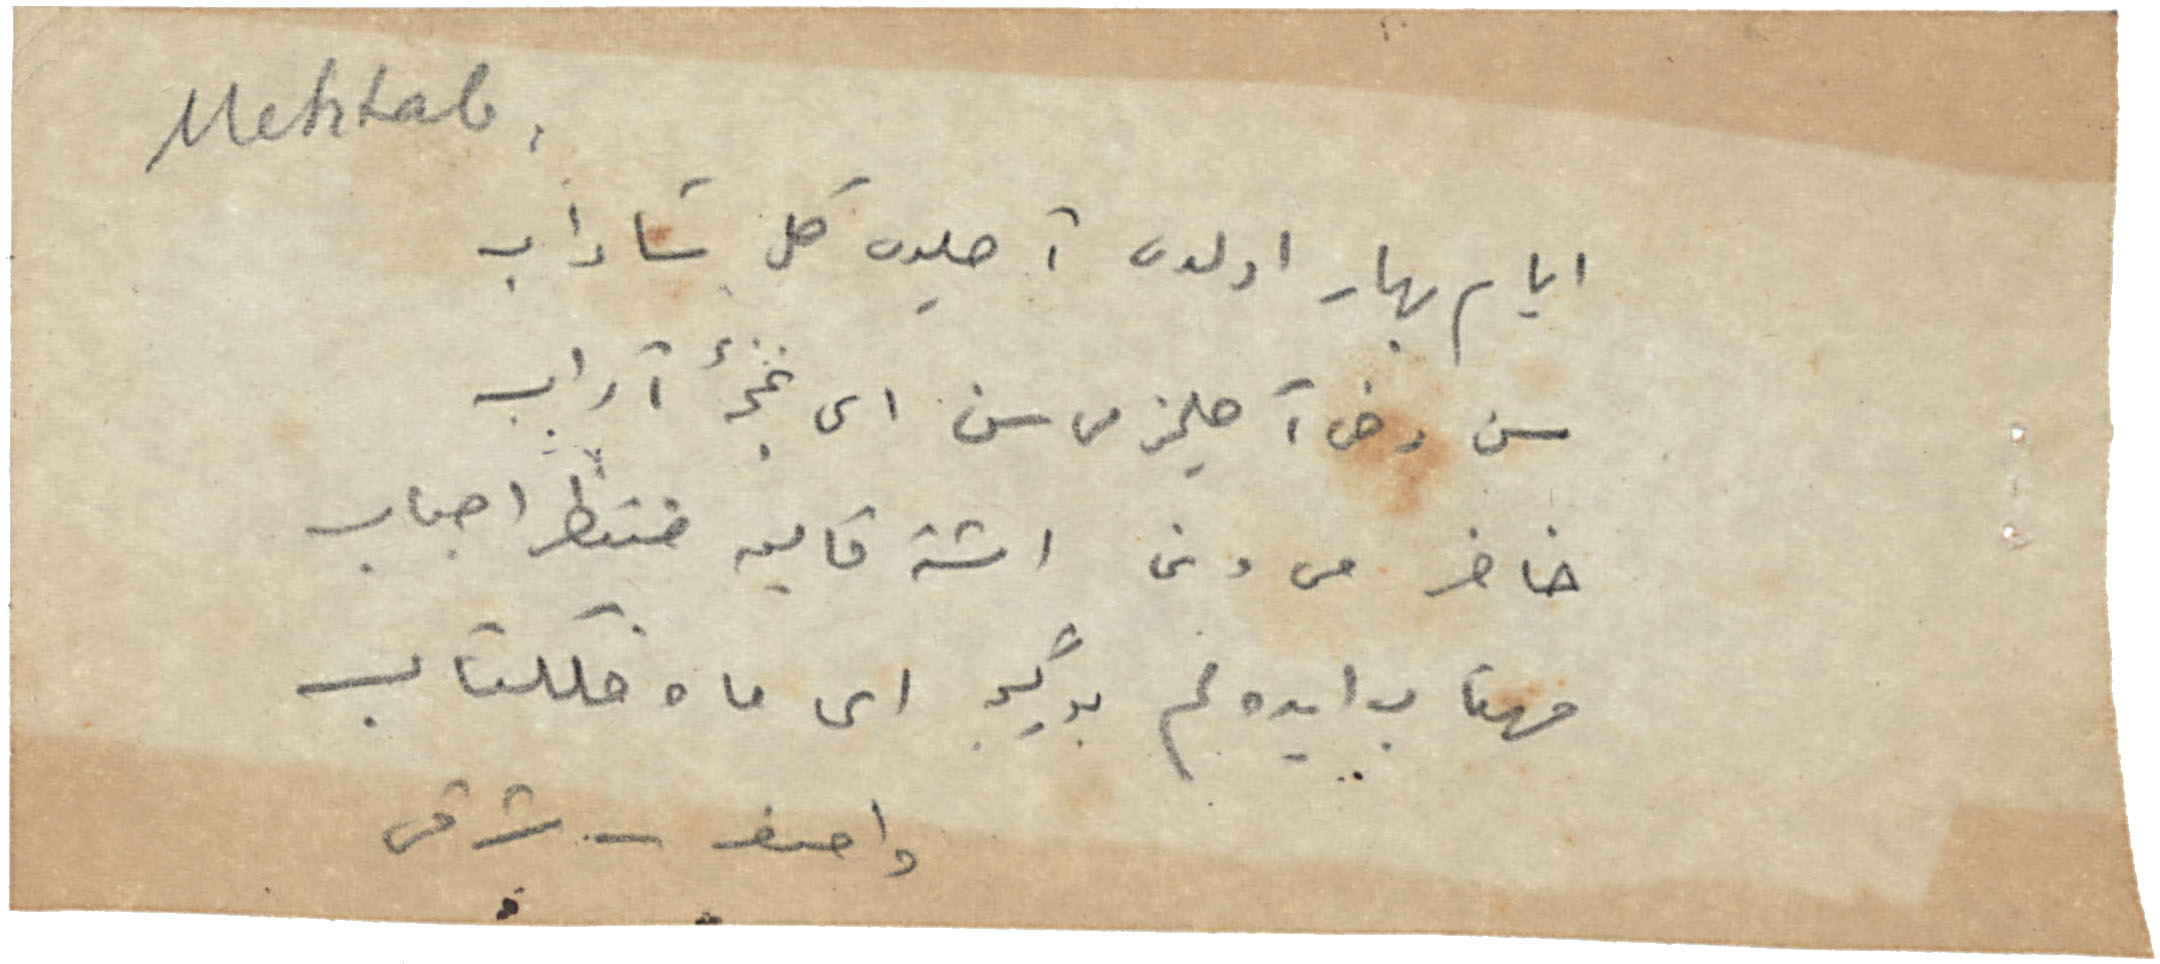 Mehtab,
ایام بهار اولدی آچیلدی گل شاداب
سن دخی آچیلمز می سن ای غنچهٔ آراب
حاضر می دخی اشته قایق منتظر احباب
مهتاب ایده لم بو گیجه ای ماه فلکتاب
واصف - شرقی